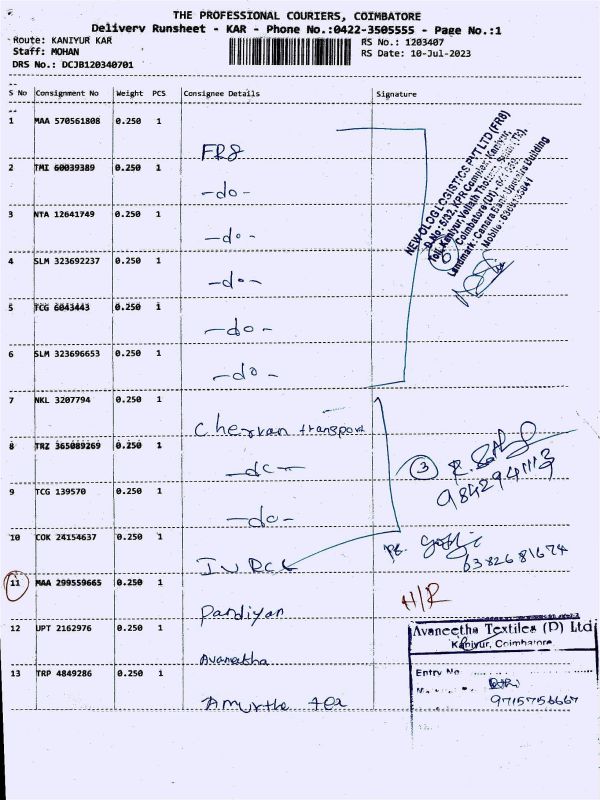 THE PROFESSIONAL COURIERS, COIMBATORE
Delivery Runsheet - KAR - Phone No.:0422-3505555 - Page No.:1
Route: KANIYUR KAR
RS No.: 1203407
Staff: MOHAN
RS Date: 10-Jul-2023
DRS No.: DCJB120340701
S No Consignment No Weight PCS Consignee Details Signature
1 MAA 570561808 0.250 1
FR8
2 TMI 60039389 0.250 1
-do-
3 NTA 12641749 0.250 1
-do-
4 SLM 323692237 0.250 1
-do-
5 TCG 6043443 0.250 1
-do-
6 SLM 323696653 0.250 1
-do-
NEWOLOG LOGISTICS PVT LTD (FR8)
D.No: 5/32, KPR Complex, Kaniyur,
Toll, Kaniyur,
Coimbatore (Dt)
Landmark: Canara Bank Upstairs Building
Mobile:
6
7 NKL 3207794 0.250 1
Cheran transport
8 TRZ 365089269 0.250 1
-do-
9 TCG 139570 0.250 1
-do-
3
9842941113
10 COK 24154637 0.250 1
6382681674
11 MAA 299559665 0.250 1
Pandiyan
H/R
12 UPT 2162976 0.250 1
Avaneetha
Avaneetha Textiles (P) Ltd
Kaniyur, Coimbatore
Entry No
13 TRP 4849286 0.250 1
Amurtha tex
9715756667